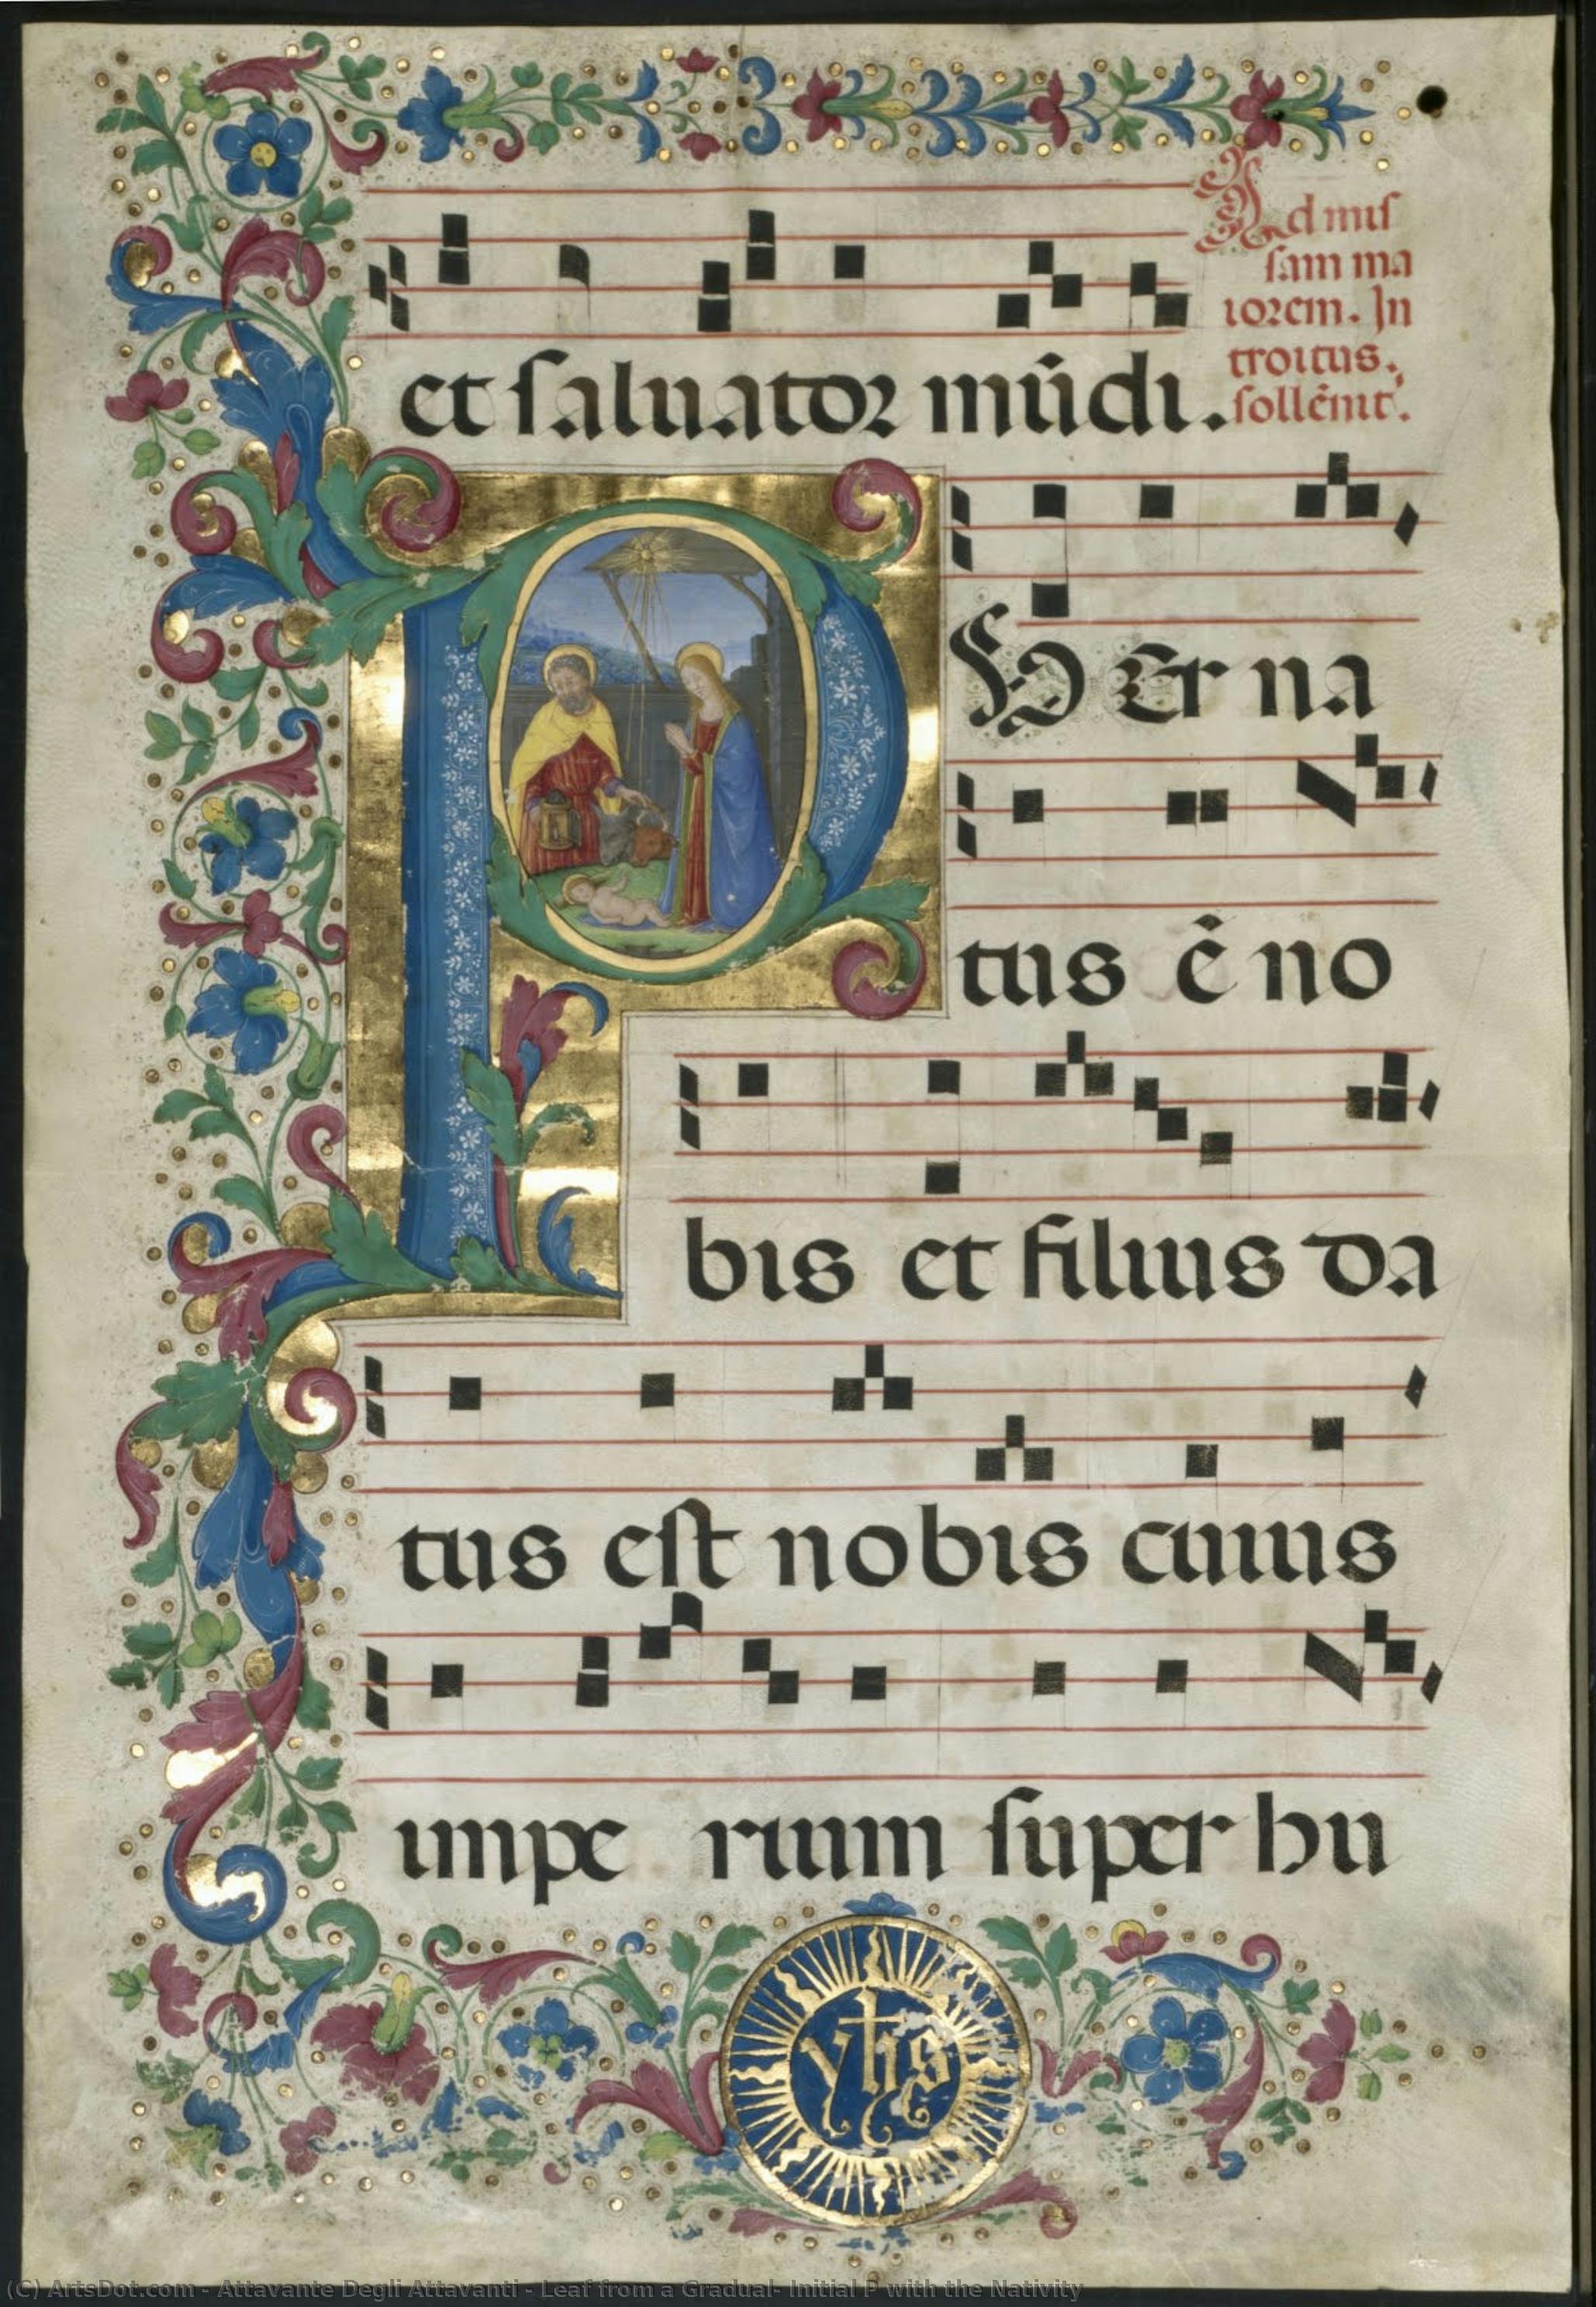 et saluator mũdi.
Ad mis
sam ma
iorem. In
troitus.
sollẽnit.
P
UER na
tus ẽ no
bis et filius da
tus est nobis cuius
impe rium super hu
yhs
(C) ArtsDot.com - Attavante Degli Attavanti - Leaf from a Gradual- Initial P with the Nativity